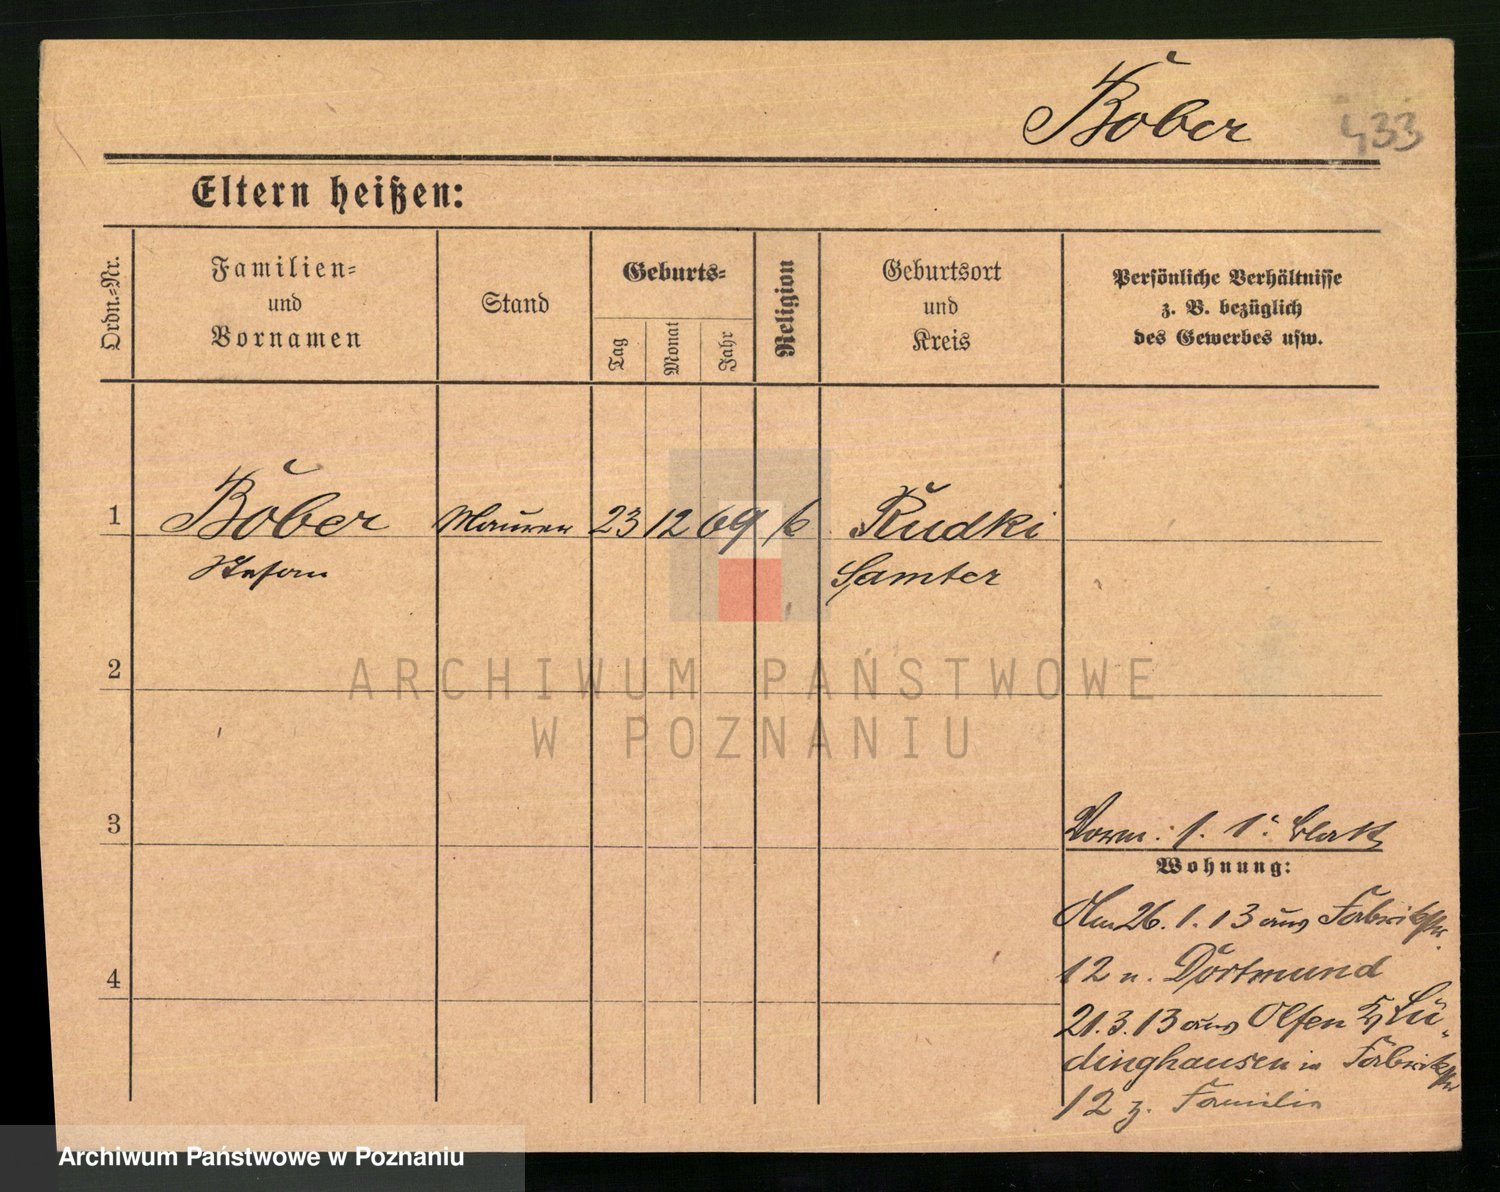 Bober
433
Eltern heißen:
Ordn.-Nr.
Familien-
und
Vornamen
Stand
Geburts-
Tag
Monat
Jahr
Religion
Geburtsort
und
Kreis
Persönliche Verhältnisse
z. B. bezüglich
des Gewerbes usw.
1
Bober
Stefan
Maurer
23 12 69 k
Rudki
Samter
2
ARCHIWUM PAŃSTWOWE
W POZNANIU
3
Vorm: 1. Blatt
Wohnung:
Am 26. 1. 13 aus Fabrikstr.
12 n. Dortmund
4
21. 3. 13 aus Olfen Lü-
dinghausen in Fabrikstr
12 z. Familie
Archiwum Państwowe w Poznaniu